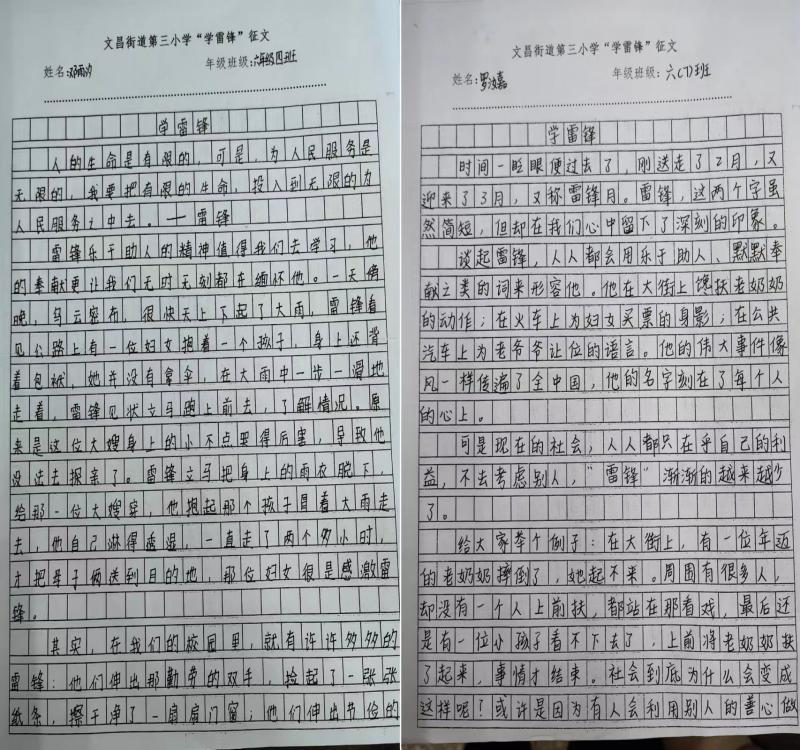 文昌街道第三小学“学雷锋”征文
姓名:邓雨汐 年级班级:六年级四班
学雷锋
人的生命是有限的,可是,为人民服务是
无限的,我要把有限的生命,投入到无限的为
人民服务之中去。——雷锋
雷锋乐于助人的精神值得我们去学习,他
的奉献更让我们无时无刻都在缅怀他。一天傍
晚,乌云密布,很快天上下起了大雨,雷锋看
见公路上有一位妇女抱着一个孩子,身上还背
着包袱,她并没有拿伞,在大雨中一步一滑地
走着,雷锋见状立马跑上前去,了解情况。原
来是这位大嫂身上的小不点哭得厉害,导致他
没法去探亲了。雷锋立马把身上的雨衣脱下,
给那一位大嫂穿,他抱起那个孩子冒着大雨走
去,他自己淋得透湿,一直走了两个多小时,
才把母子俩送到目的地,那位妇女很是感激雷
锋。
其实,在我们的校园里,就有许许多多的
雷锋:他们伸出那勤劳的双手,捡起了一张张
纸条,擦干净了一扇扇门窗;他们伸出节俭的
文昌街道第三小学“学雷锋”征文
姓名:罗汝嘉 年级班级:六(7)班
学雷锋
时间一眨眼便过去了,刚送走了2月,又
迎来了3月,又称雷锋月。雷锋,这两个字虽
然简短,但却在我们心中留下了深刻的印象。
谈起雷锋,人人都会用乐于助人、默默奉
献之类的词来形容他。他在大街上搀扶老奶奶
的动作;在火车上为妇女买票的身影;在公共
汽车上为老爷爷让位的语言。他的伟大事件像
风一样传遍了全中国,他的名字刻在了每个人
的心上。
可是现在的社会,人人都只在乎自己的利
益,不去考虑别人,“雷锋”渐渐的越来越少
了。
给大家举个例子:在大街上,有一位年迈
的老奶奶摔倒了,她起不来。周围有很多人,
却没有一个人上前扶,都站在那看戏,最后还
是有一位小孩子看不下去了,上前将老奶奶扶
了起来,事情才结束。社会到底为什么会变成
这样呢?或许是因为有人会利用别人的善心做